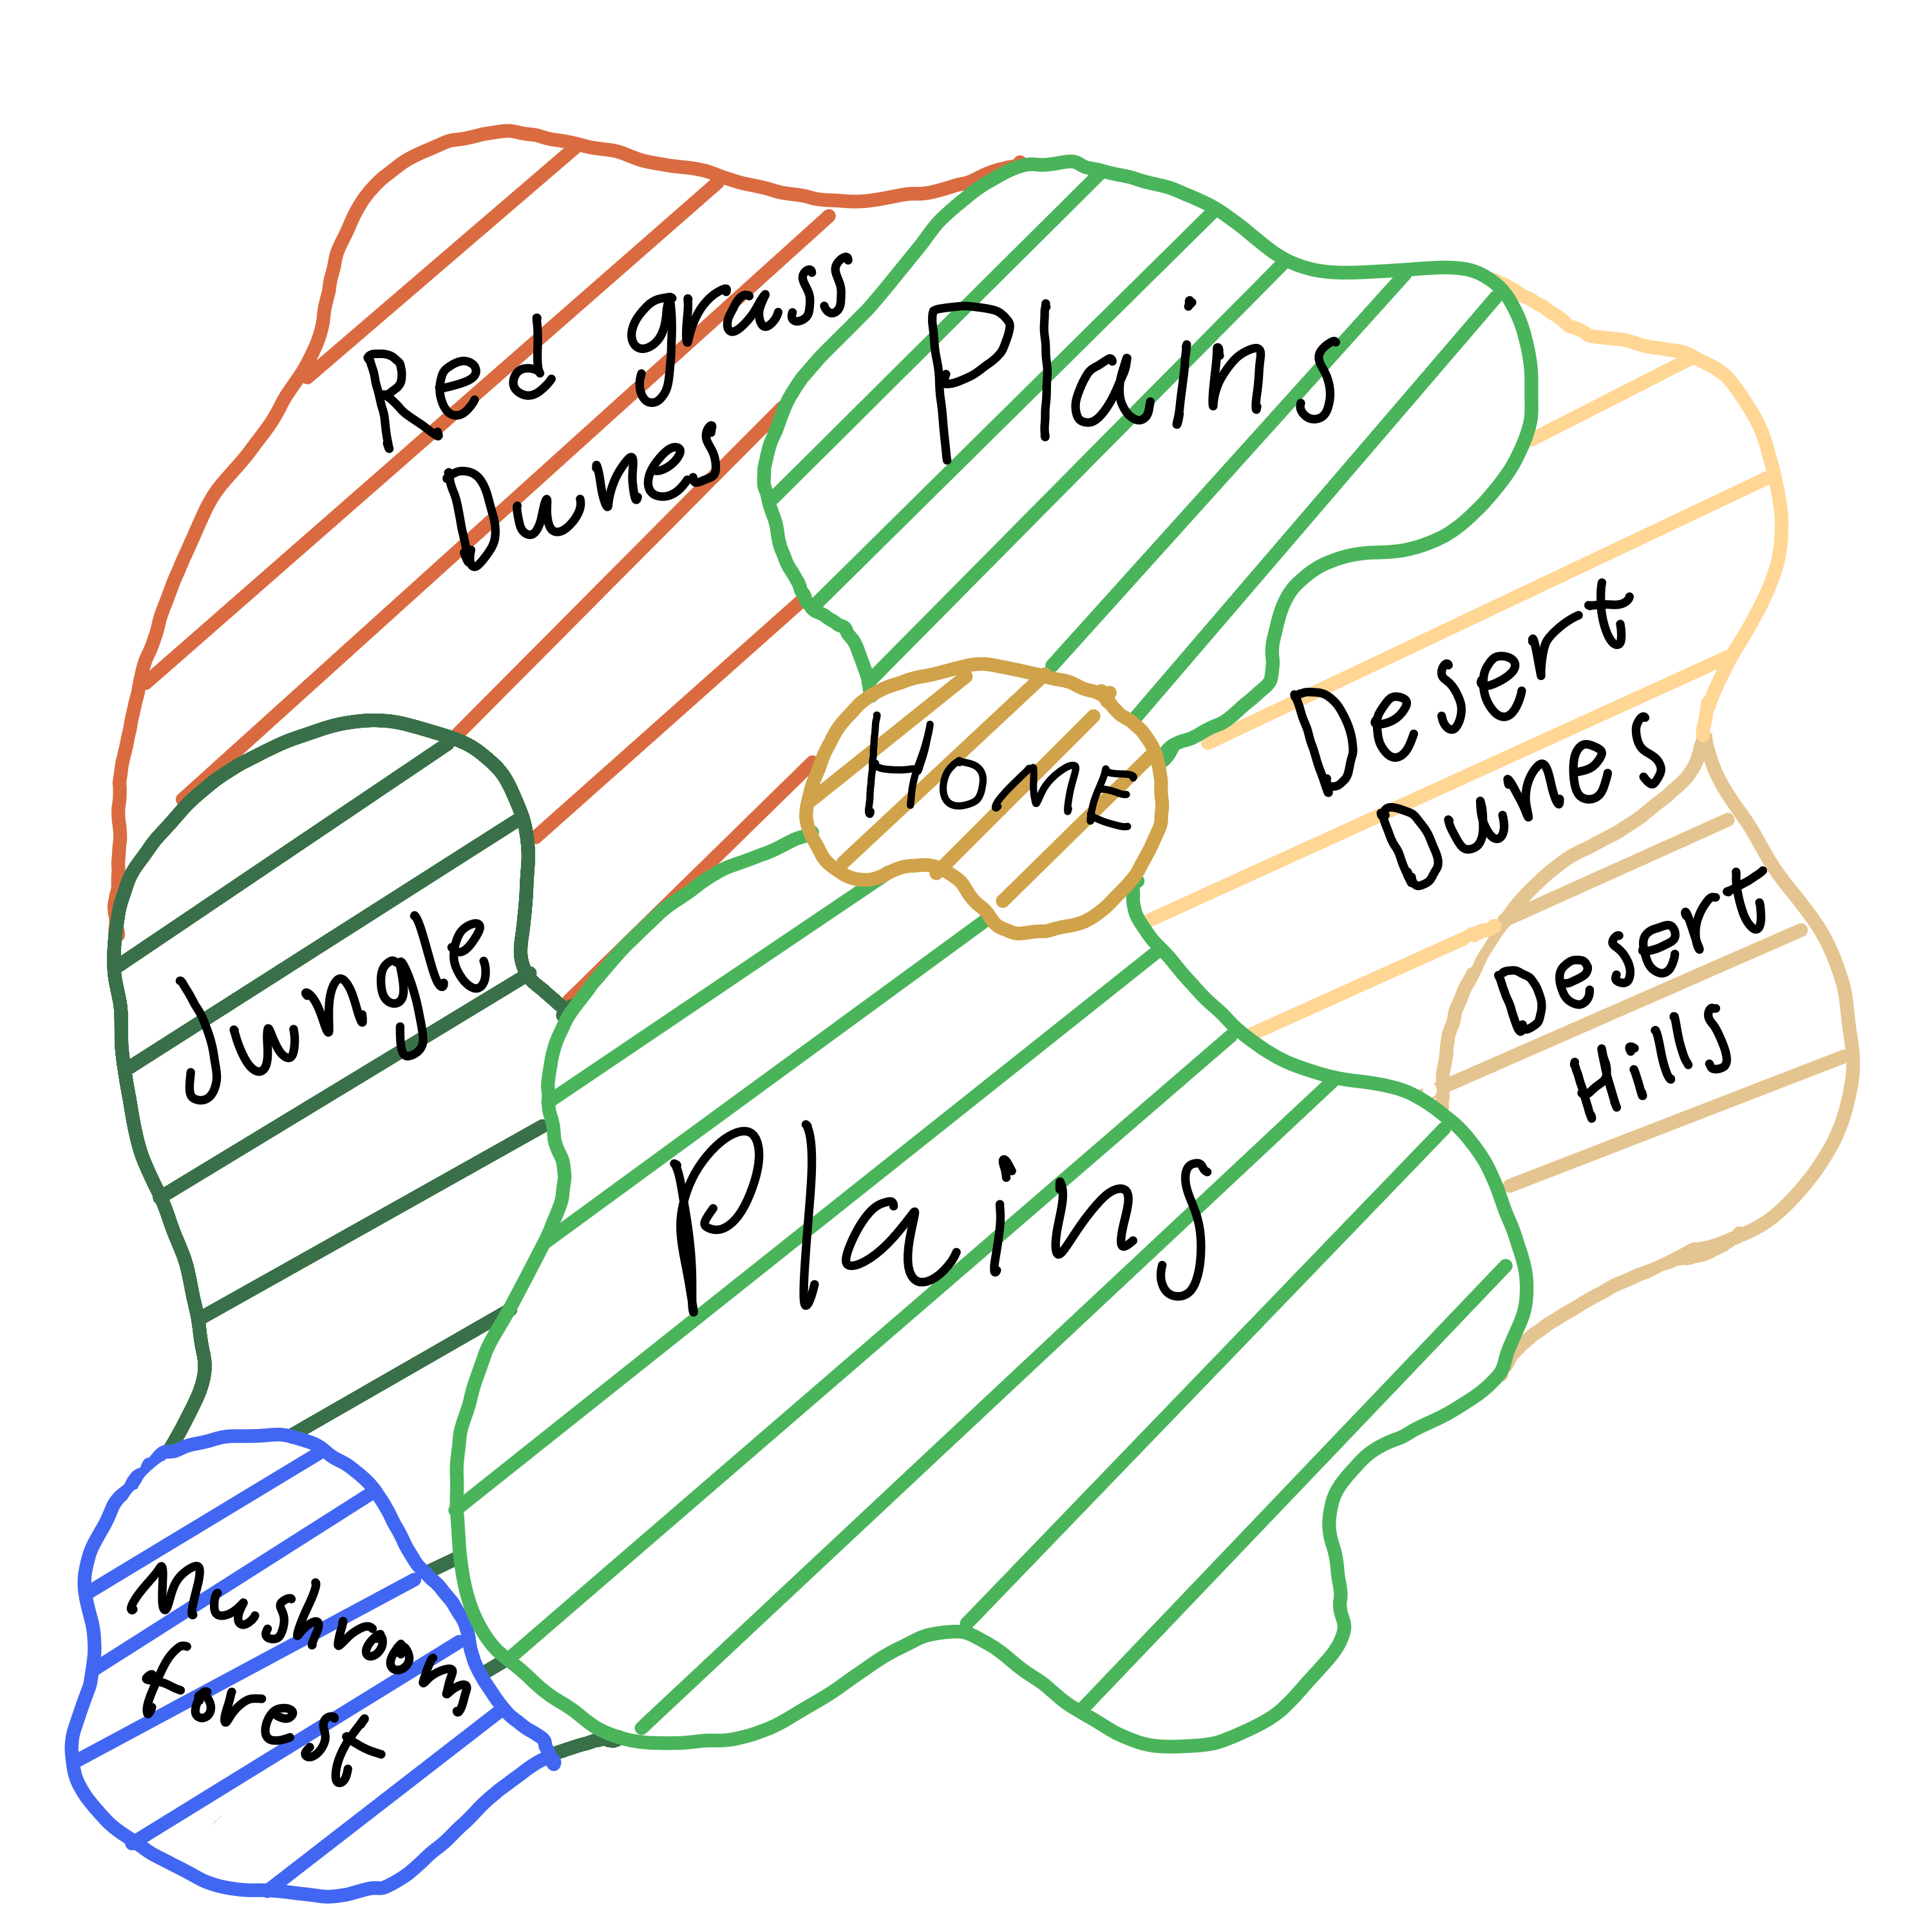 Red grass
Dunes
Plains
Home
Desert
Dunes
Desert
Hills
Jungle
Plains
Mushroom
Forest